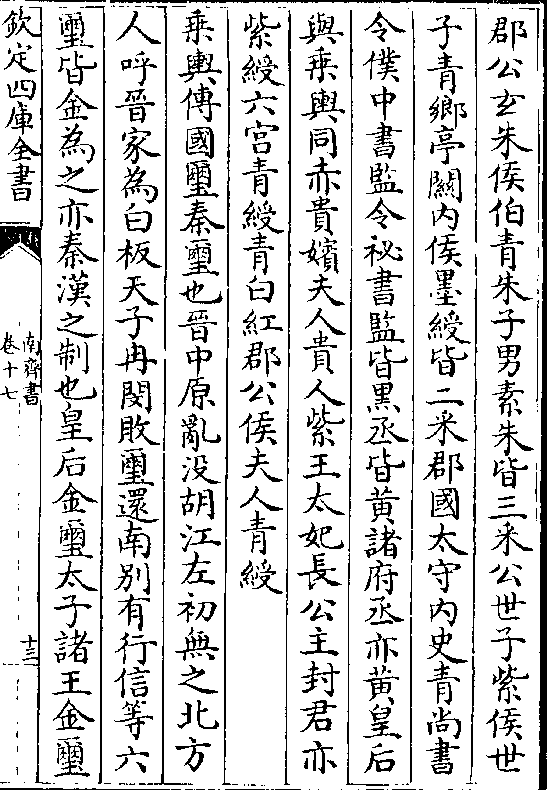 郡公玄朱侯伯青朱子男素朱皆三采公世子紫侯世
子青鄉亭關内侯墨綬皆二采郡國太守内史青尚書
令僕中書監令祕書監皆黑丞皆黃諸府丞亦黃皇后
與乗輿同赤貴嬪夫人貴人紫王太妃長公主封君亦
紫綬六宫青綬青白紅郡公侯夫人青綬
乗輿傳國璽秦璽也晉中原亂没胡江左初無之北方
人呼晉家為白板天子冉閔敗璽還南别有行信等六
璽皆金為之亦秦漢之制也皇后金璽太子諸王金璽
欽定四庫全書
南齊書
卷十七
十三